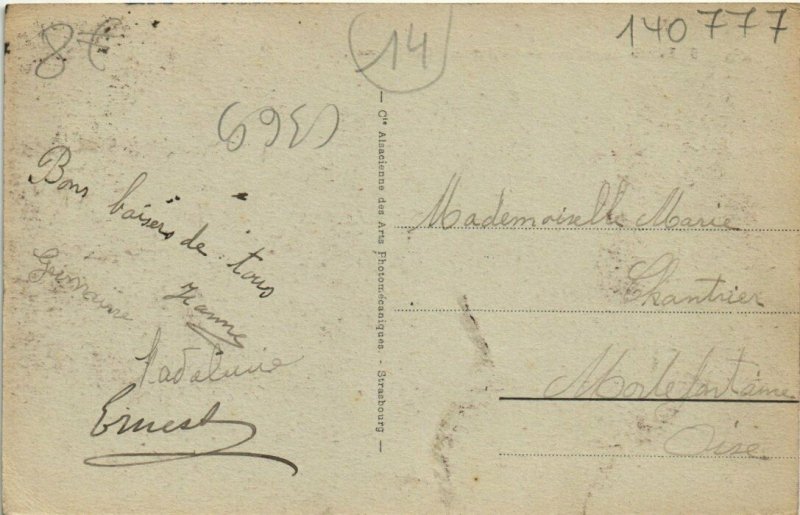 8€
14
140777
Bons baisers de tous
Jeanne
Germaine
Madeleine
Ernest
— Cie Alsacienne des Arts Photomécaniques. - Strasbourg —
Mademoiselle Marie
Chantrier
Mortefontaine
Oise